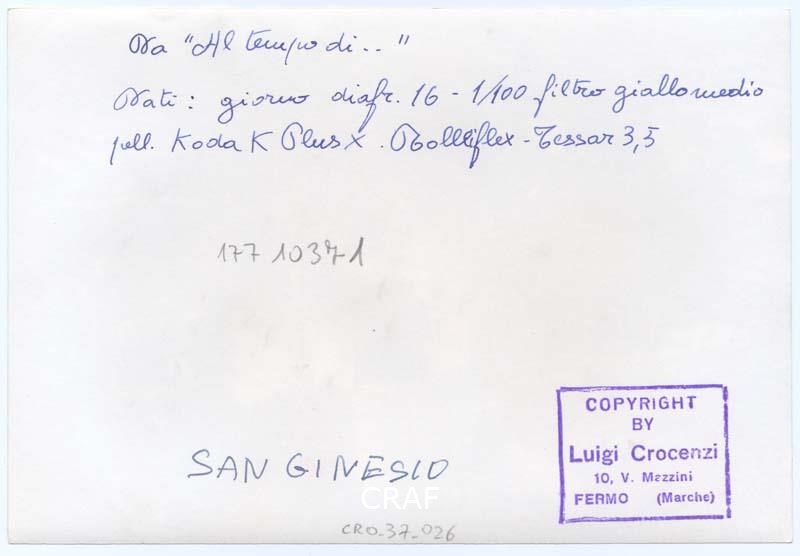 Da "Al tempo di.."
Dati: giorno diafr. 16 - 1/100 filtro giallo medio
pell. Kodak Plus X. Rolleiflex - Tessar 3,5
177 10371
COPYRIGHT
BY
Luigi Crocenzi
10, V. Mazzini
FERMO (Marche)
SAN GINESIO
CRAF
CRO_37_026